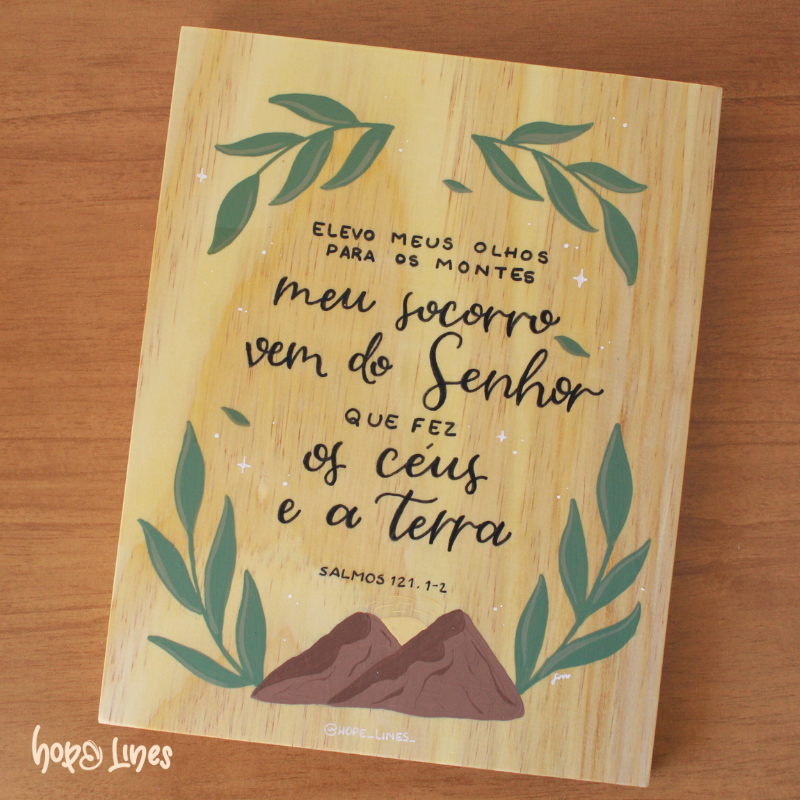 ELEVO MEUS OLHOS
PARA OS MONTES
meu socorro
vem do Senhor
QUE FEZ
os céus
e a terra
SALMOS 121. 1-2
@HOPE_LINES_
hope Lines